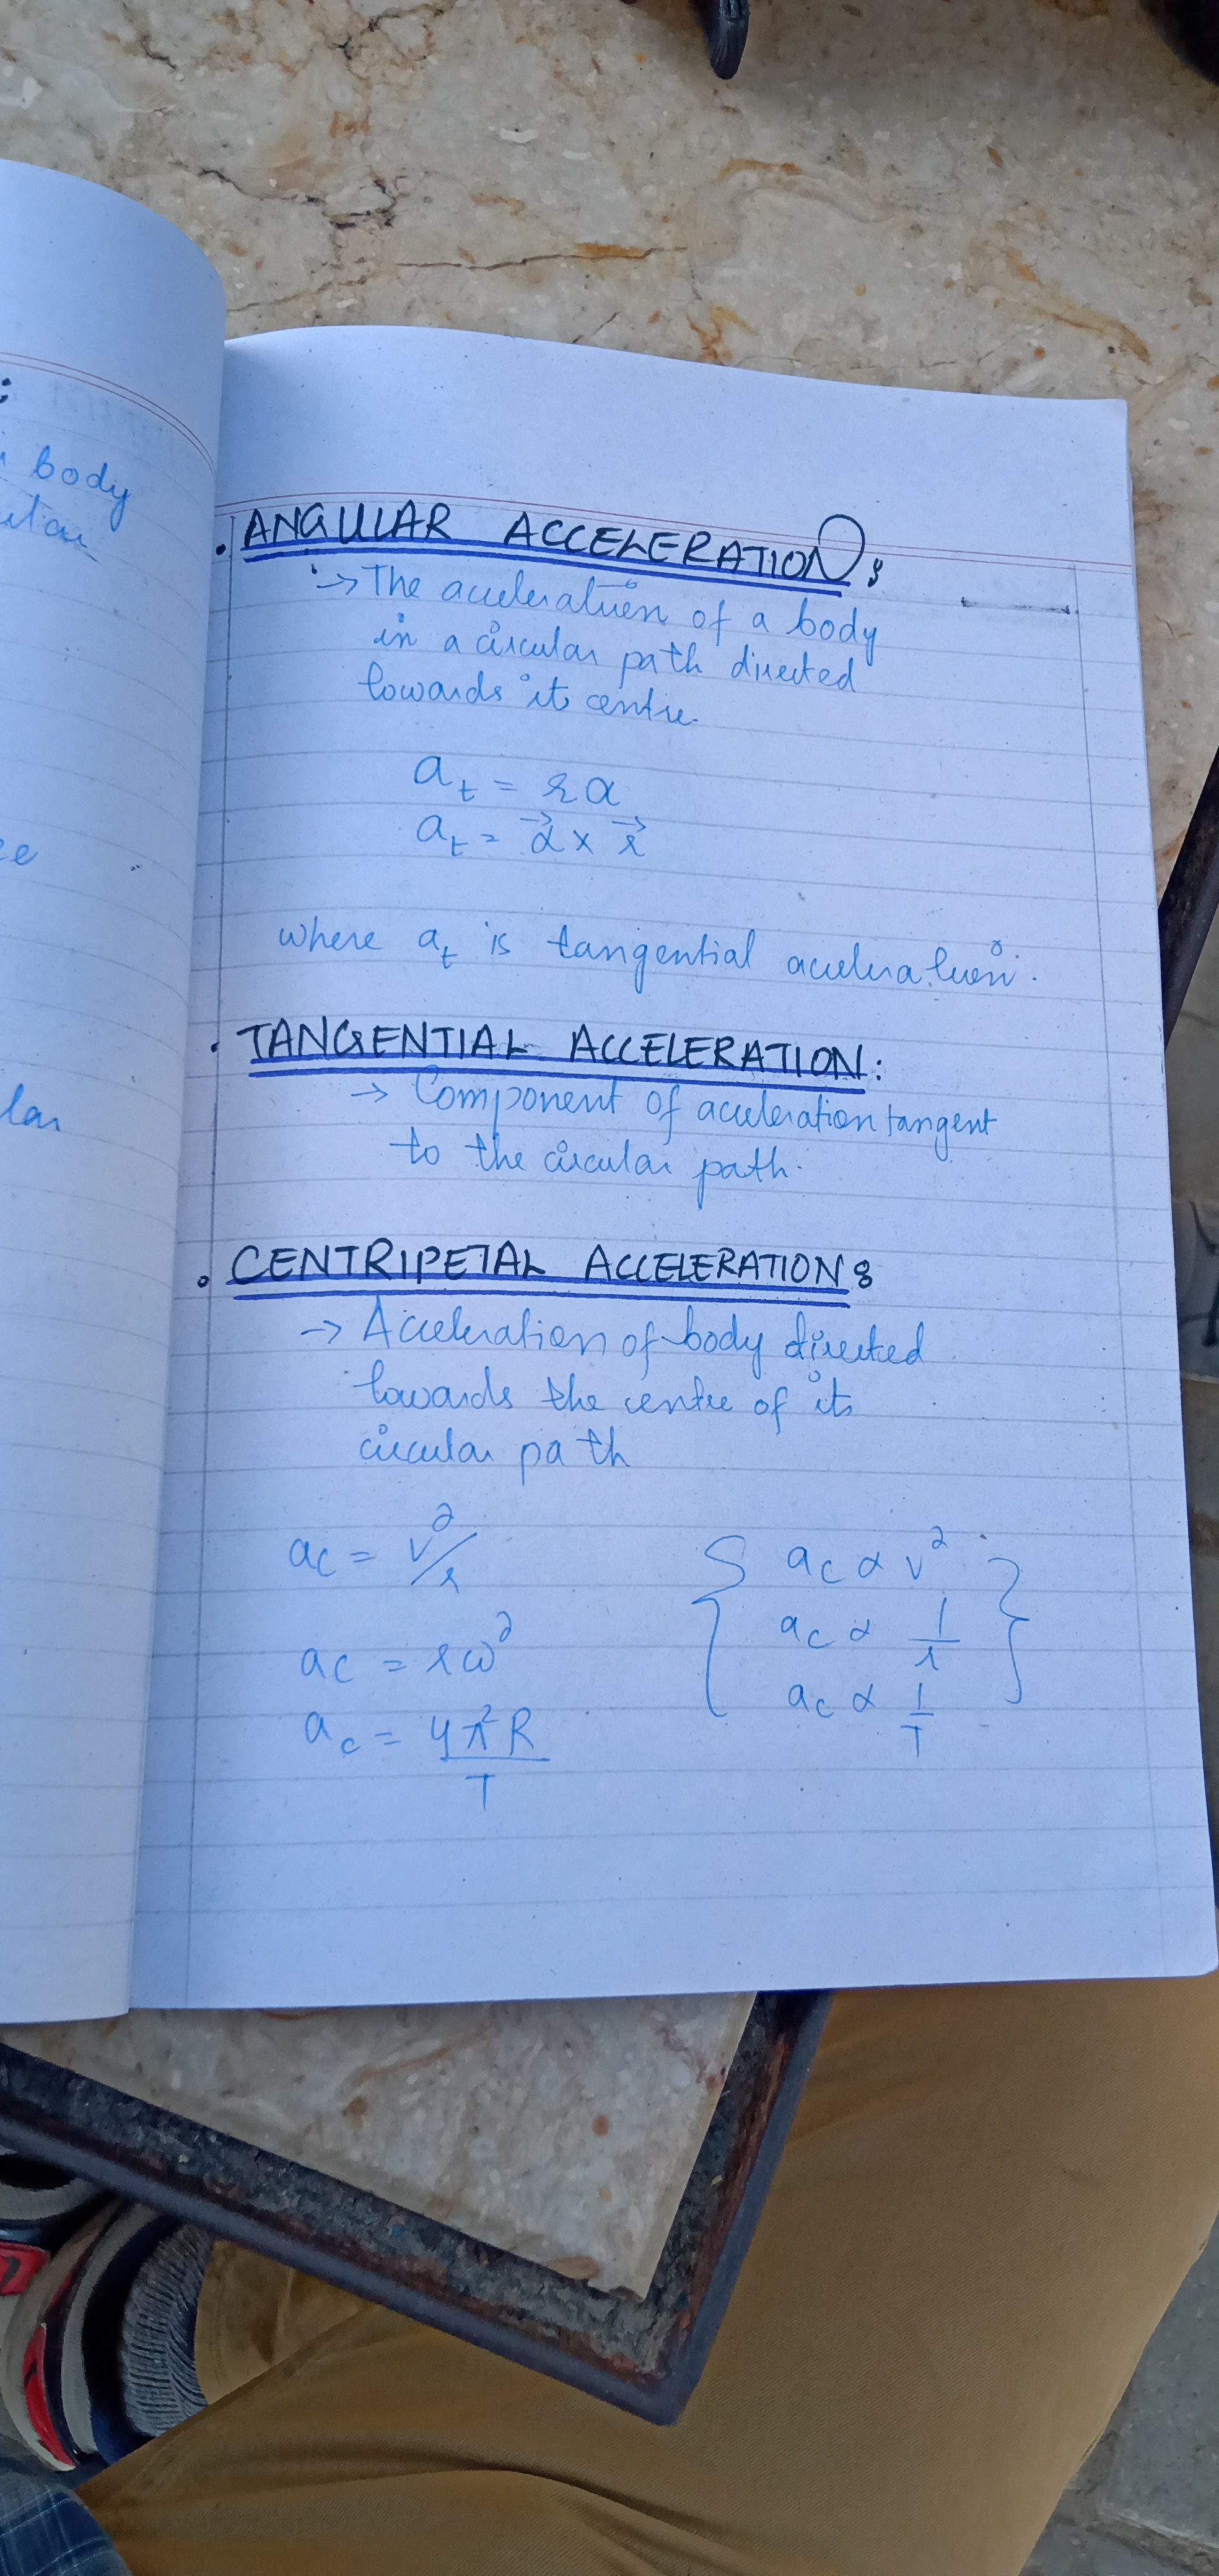 :
body
ular
ce
lar
. ANGULAR ACCELERATION:
→ The acceleration of a body
in a circular path directed
towards its centre.
a_t = rα
a_t = α⃗ × r⃗
where a_t is tangential acceleration.
. TANGENTIAL ACCELERATION:
→ Component of acceleration tangent
to the circular path.
. CENTRIPETAL ACCELERATION:
→ Acceleration of body directed
towards the centre of its
circular path
ac = v²/r
ac = rω²
a_c = 4π²R/T
{ ac ∝ v²
ac ∝ 1/r
ac ∝ 1/T }